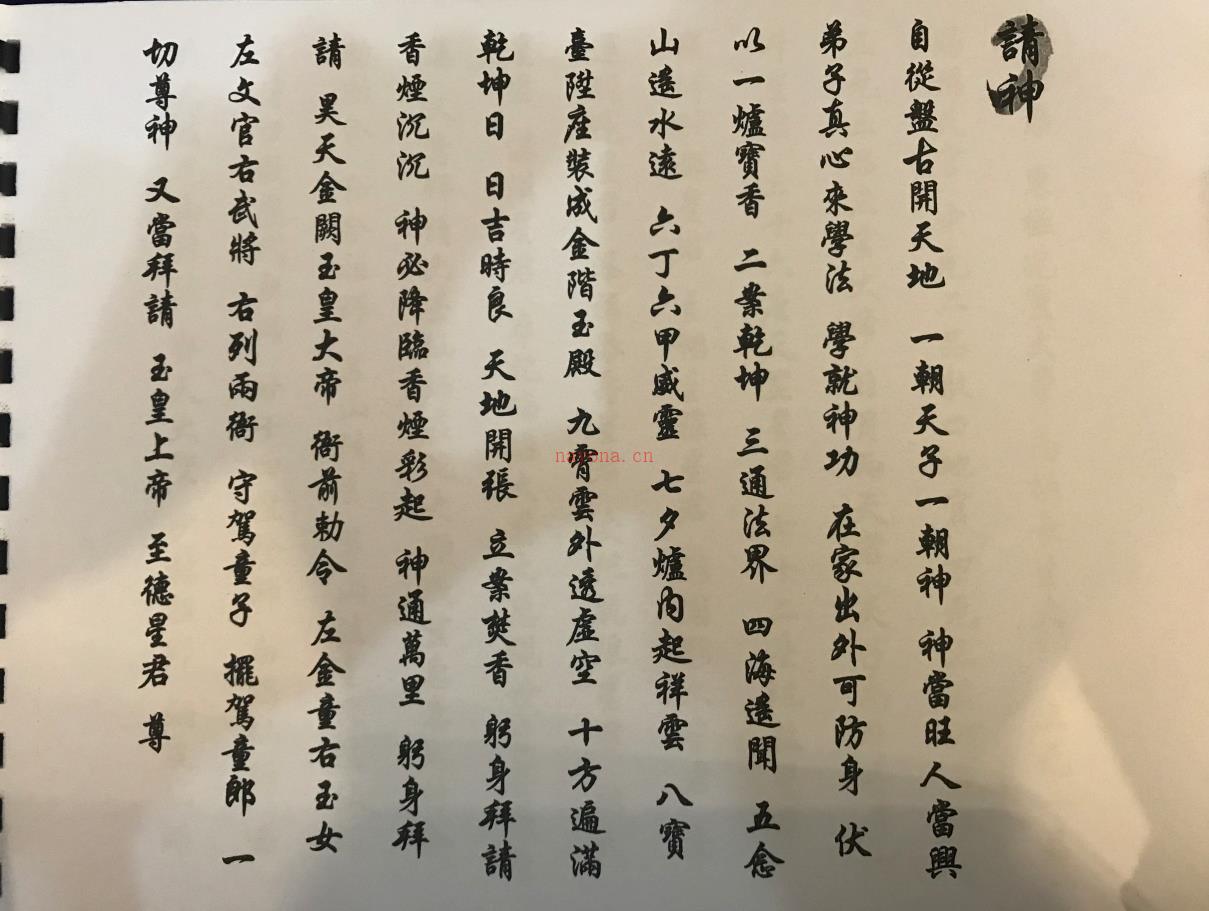 請神
自從盤古開天地 一朝天子一朝神 神當旺人當興
弟子真心來學法 學就神功 在家出外可防身 伏
以一爐寶香 二案乾坤 三通法界 四海遙聞 五念
山遙水遠 六丁六甲威靈 七夕爐內起祥雲 八寶
臺陞座裝成金階玉殿 九霄雲外透虛空 十方遍滿
乾坤日 日吉時良 天地開張 立案焚香 躬身拜請
香煙沉沉 神必降臨香煙彩起 神通萬里 躬身拜
請 昊天金闕玉皇大帝 衙前勅令 左金童右玉女
左文官右武將 右列兩衙 守駕童子 擺駕童郎 一
切尊神 又當拜請 玉皇上帝 至德星君 尊
nayona.cn